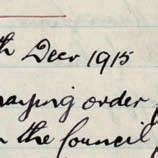 th Decr 1915
paying order
the Council